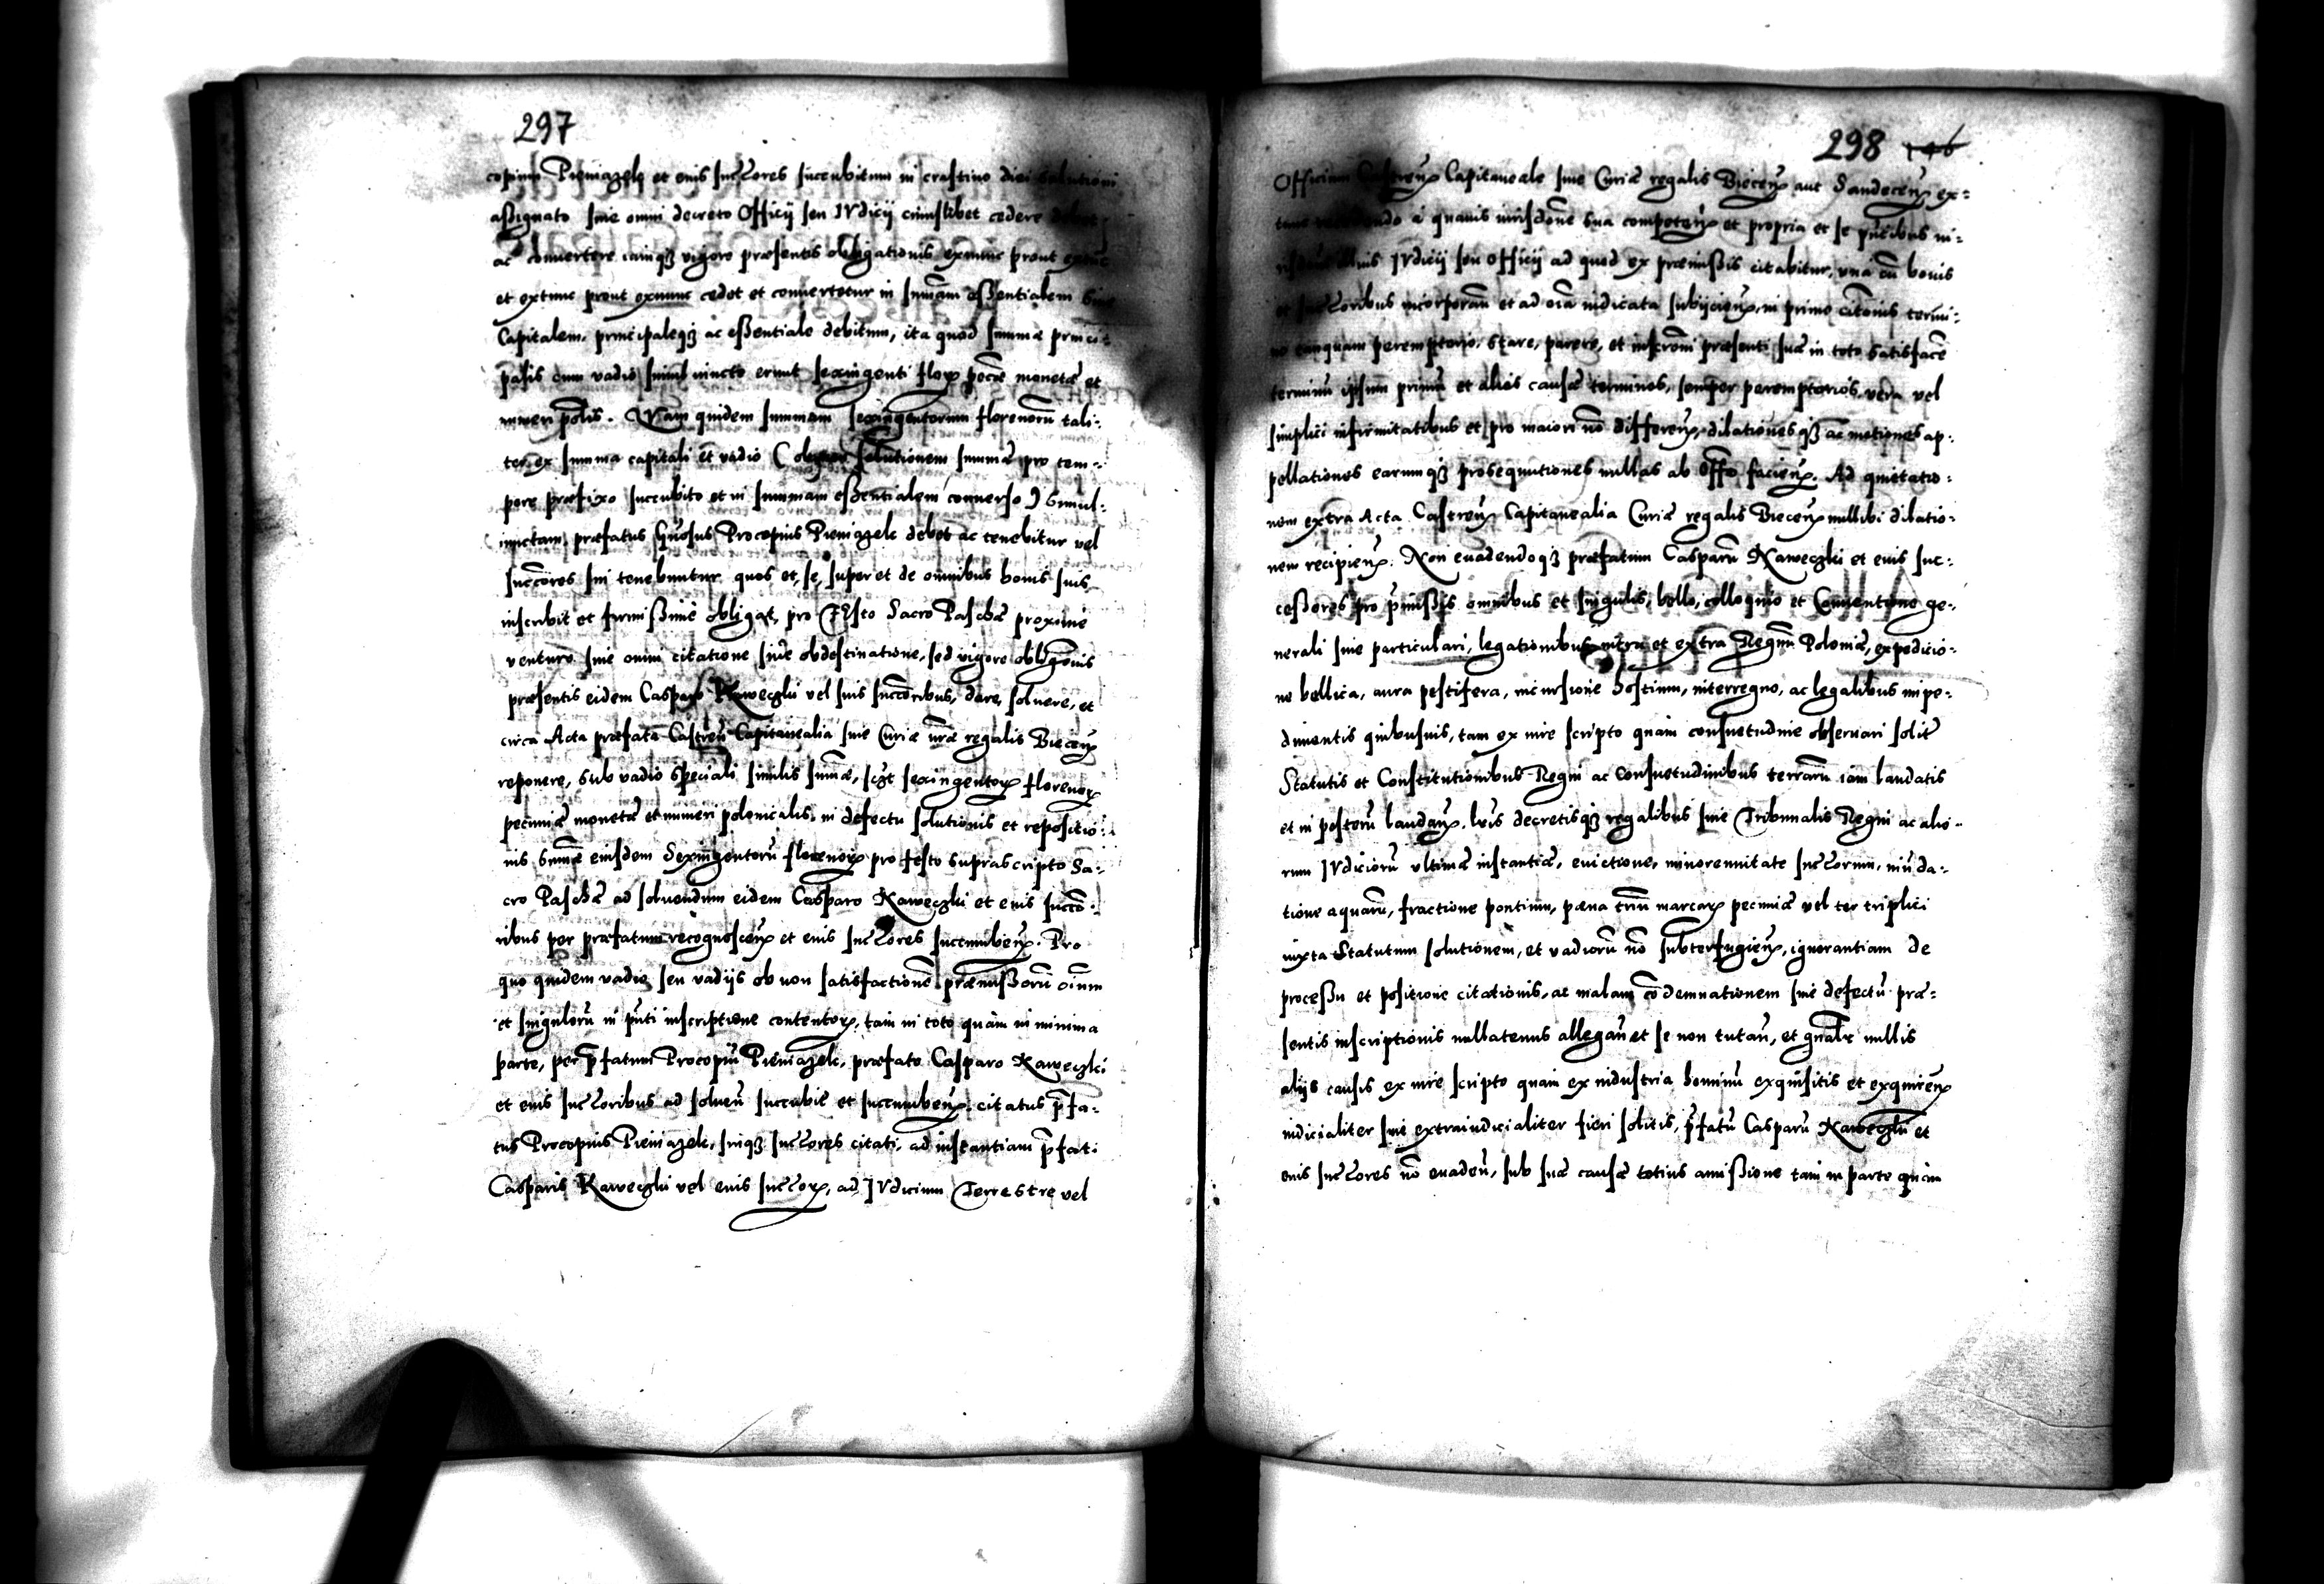 297
copium Pieniążek et eius succores succubitum in crastino diei solutioni
assignato sine omni decreto Officij seu IVdicij cuiuslibet cedere debet
ac convertere iamq3 vigore præsentis obligationis exnunc prout extunc
et extunc prout exnunc cedet et convertetur in summam essentialem sive
Capitalem, principaleq3 ac essentiale debitum, ita quod summæ princi-
palis cum vadio simul iuncto erunt sexingenti flor pecæ monetæ et
numeri polis. Quam quidem summam sexingentorum florenorū tali-
ter ex summa capitali et vadio ( ob non solutionem summæ pro tem-
pore præfixo succubito et in summam essentialem converso ) simul-
iunctam, præfatus Gnosus Procopius Pieniązek debet ac tenebitur vel
succores sui tenebuntur quos et, se, super et de omnibus bonis suis
inscribit et firmissime obligat, pro Festo Sacro Paschæ proxime
venturo sine omni citatione sive obdestinatione, sed vigore obligonis
præsentis eidem Casparo Kaweczki vel suis succoribus, dare, solvere, et
circa Acta præfata Castren Capitanealia sive Curiæ nræ regalis Biecen
reponere, sub vadio speciali similis sumæ, sczt sexingentor florenor
pecuniæ monetæ et numeri polonicalis, in defectu solutionis et repositio-
nis summæ eiusdem Sexingentorū florenor pro festo suprascripto Sa-
cro Paschæ ad solvendum eidem Casparo Kaweczki et eius succo-
ribus per præfatum recognoscen et eius succores succumben. Pro
quo quidem vadio seu vadijs ob non satisfactionē præmissorū oium
et singulorū in pnti inscriptione contentor, tam in toto quam in minima
parte, per pfatum Procopiū Pieniązek, præfato Casparo Kaweczki
et eius succoribus ad solven succubit et succumben. citatus pfa-
tus Procopius Pieniązek, suiq3 succores citati, ad instantiam pfati
Casparis Kaweczki vel eius succor, ad IVdicium Terrestre vel
298 146
Officium Castren Capitaneale sive Curiæ regalis Biecen aut Sandecen ex-
tunc a quavis iurisdone sua competen et propria et se pntibus iu-
IVdicij seu officij ad quod ex præmissis citabitur, una cū bonis
et succoribus incorporan et ad oia iudicata subijcien, in primo citonis termi-
no tanquam peremptorio, stare, parere, et inscroni præsenti suæ in toto satisfacē
terminū ipsum primū et alios causæ terminos, semper peremptorios vera vel
simplici infirmitatibus et pro maiori nō differen, dilationesq3 ac motiones ap-
pellationes earumq3 prosequutiones nullas ab Offo facien. Ad quietatio-
nem extra Acta Castren Capitanealia Curiæ regalis Biecen nullibi dilatio-
nem recipien. Non evadendoq3 præfatum Casparū Kaweczki et eius suc-
cessores pro pmissis omnibus et singulis, bello, colloquio et Conventione ge-
nerali sive particulari, legationibus intra et extra Regnū Poloniæ, expedicio-
ne bellica, aura pestifera, incursione hostium, interregno, ac legalibus impe-
dimentis quibusvis, tam ex iure scripto quam consuetudine observari solit
Statutis et Constitutionibus Regni ac consuetudinibus terrarū iam laudatis
et in posterū laudan, lris decretisq3 regalibus sive Tribunalis Regni ac alio-
rum IVdiciorū ultimæ instantiæ, evictione, minorennitate succorum, inūda-
tione aquarū, fractione pontium, pæna triū marcar pecuniæ vel ter triplici
iuxta Statutum solutionem, et vadiorū nō subterfugien, ignorantiam de
processu et positione citationis, ac malam cōdemnationem sive defectū præ-
sentis inscriptionis nullatenus allegan et se non tutan, et gnalr nullis
alijs causis ex iure scripto quam ex industria hominū exquisitis et exquiren
iudicialiter sive extraiudicialiter fieri solitis, pfatū Casparū Kaweczki et
eius succores nō evaden, sub suæ causæ totius amissione tam in parte quam